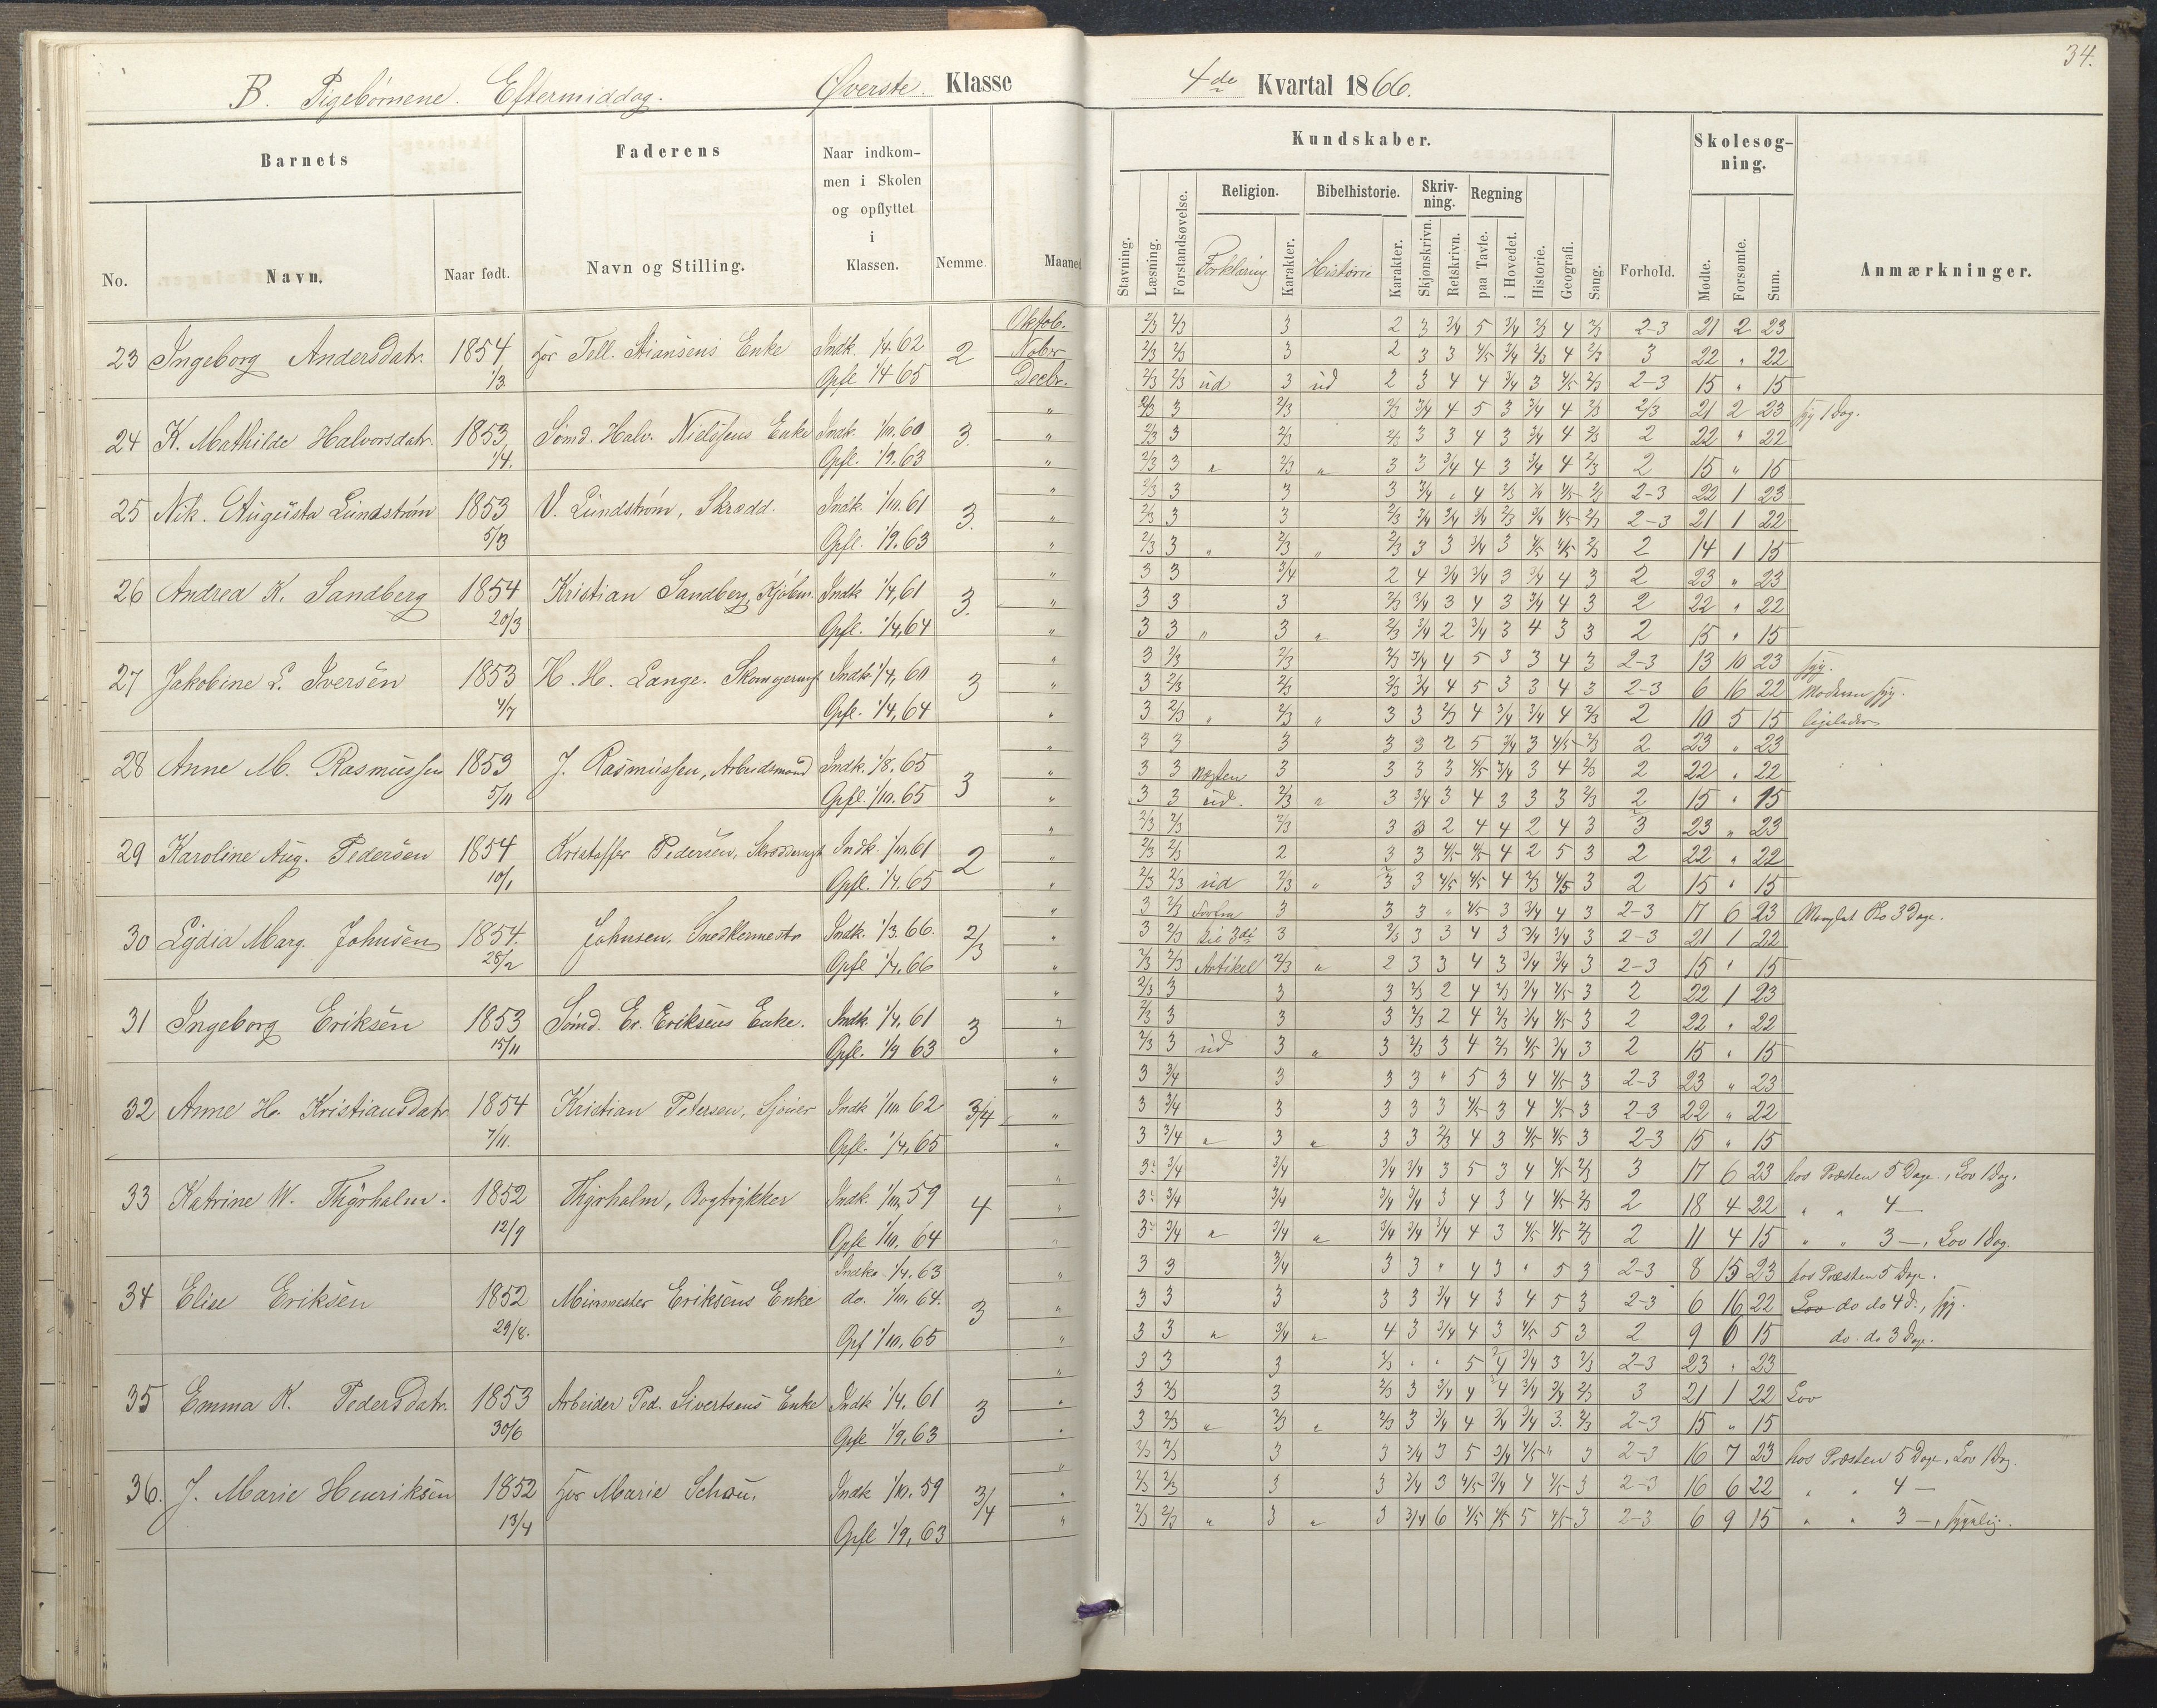 34.
B. Pigebørnene. Eftermiddag. Øverste Klasse
4de Kvartal 1866.
Barnets Faderens Naar indkommen i Skolen og opflyttet i Klassen. Nemme. Maaned
No. Navn. Naar født. Navn og Stilling.
Kundskaber. Skolesogning.
Stavning. Læsning. Forstandsøvelse. Religion. Bibelhistorie. Skrivning. Regning
Forklaring Karakter. Historie Karakter. Skjonskrivn. Retskrivn. paa Tavle. i Hovedet. Historie. Geografi. Sang. Forhold. Mødte. Forsømte. Sum. Anmærkninger.
23 Ingeborg Andersdatr. 1854 1/3. Jør Tell. Stiansens Enke Indk. 1/4. 62 Opfl 1/4 65 2
Oktob. 2/3 2/3 3 2 3 3/4 5 3/4 2/3 4 2/3 2-3 21 2 23
Nobr. 2/3 2/3 3 2 3 3 4/5 3/4 2/3 4 2/3 3 22 " 22
Decbr. 2/3 2/3 ud 3 ud 2 3 4 4 3/4 3 4/5 2/3 2-3 15 " 15
24 K. Mathilde Halvorsdatr. 1853, 1/4. Sømd. Halv. Nielsens Enke Indk. 1/10. 60 Opfl. 1/9. 63 3.
2/3 3 2/3 2/3 3/4 4 5 3 3/4 4 2/3 2/3 21 2 23 syg 1 Dag.
2/3 3 2/3 2/3 3 3 4 3 3/4 4 2/3 2 22 " 22
2/3 3 " 2/3 " 3 3 3/4 4 3 3/4 4 2/3 2 15 " 15
25 Nik. Augusta Lundstrøm 1853 5/13 V. Lundstrøm, Skrædd. Indk. 1/10. 61 Opfl. 1/9. 63 3.
2/3 3 3 3 3/4 " 4 2/3 3/4 4/5 2/3 2-3 22 1 23
2/3 3 3 2/3 3/4 3/4 3/4 2/3 3/4 4/5 2/3 2-3 21 1 22
2/3 3 " 2/3 " 2/3 3 3 3/4 3 4/5 4/5 2/3 2 14 1 15
26 Andrea K. Sandberg 1854 20/3 Kristian Sandberg, Kjøbm. Indk 1/4, 61 Opfl. 1/4, 64 3.
3 3 3/4 2 4 3/4 3/4 3 3/4 4 3 2 23 " 23
3 3 3 2/3 3/4 3 4 3 3/4 4 3 2 22 " 22
3 3 " 3 " 2/3 3/4 2 3/4 3 4 3 3 2 15 " 15
27 Jakobine L. Iversen 1853 4/7 H. H. Lange. Indk 1/4, 60 Opfl. 1/4, 64 3
3 2/3 2/3 2/3 3/4 4 5 3 3 4 3 2-3 13 10 23 syg.
3 2/3 2/3 2/3 3/4 4 5 3 3 4 3 2-3 6 16 22 Moderen syg.
3 2/3 " 2/3 " 3 3 2/3 4 3/4 3/4 4 2/3 2 10 5 15 ligeledes
28 Anne M. Rasmussen 1853 5/11 J. Rasmussen, Arbeidsmand Indk. 1/8. 65 Opfl. 1/10. 65 3
3 3 3 3 3 2 5 3/4 3 4/5 2/3 2 23 " 23
3 3 næsten 3 3 3 3 4/5 3/4 3 4 2/3 2 22 " 22
3 3 ud. 2/3 " 3 3/4 3 4 3 3 3 2/3 2 15 " 15
29 Karoline Aug. Pedersen 1854 10/1 Kristoffer Pedersen, Indk. 1/10. 61 Opfl. 1/4. 65 2
2/3 2/3 2/3 3 3 2 4 4 2 4 3 3 23 " 23
2/3 2/3 2 3 3 4/5 4/5 4 2 5 3 2 22 " 22
2/3 2/3 ud 2/3 " 3 3 4/5 4/5 4 2/3 4/5 3 2 15 " 15
30 Lydia Marg. Johnsen 1854. 28/2 Johnsen, Snedkermestr Indk. 1/3, 66. Opfl 1/4, 66 2/3
3 2/3 3 3 3 " 4/5 3 3/4 4 3 2-3 17 6 23 3 Dage.
3 2/3 3die 3 2/3 3 3 4 3 3/4 3/4 3 2-3 21 1 22
2/3 2/3 Artikel 2/3 " 2 3 3 4 3 3/4 3/4 3 2-3 15 " 15
31 Ingeborg Eriksen 1853 15/11 Sømd. Er. Eriksens Enke. Indk. 1/4, 61 Opfl. 1/9 63 3
2/3 3 3 3 2/3 2 4 2/3 3/4 4/5 3 2 22 1 23
2/3 3 3 3 2/3 2 4 2/3 3/4 4/5 3 2 22 " 22
2/3 3 ud 3 " 3 2/3 3 4 2/3 4/5 3/4 3 2 15 " 15
32 Anne H. Kristiansdatr 1854 7/11. Kristian Petersen, Sjouer Indk 1/10 62 Opfl. 1/4, 65 3/4
3 3/4 3 3 3 " 5 3 4 4/5 3 2-3 23 " 23
3 3/4 3 3 3 3 4/5 3 4 4/5 3 2-3 22 " 22
3 3/4 " 3 " 3 3 2/3 4 3 4/5 4/5 3 2-3 15 " 15
33 Katrine W. Thyrholm. 1852 12/9 Thyrholm, Bogtrykker Indk 1/10, 59 Opfl 1/10, 64 4
3 3/4 3/4 3/4 3/4 3 5 3 4 4/5 2/3 3 17 6 23 hos Præsten 5 Dage., Lov 1 Dag.
3 3/4 3/4 3/4 3/4 3 4 3 4 4/5 2/3 2 18 4 22 " " 4 —
3 3/4 " 3/4 " 3/4 3/4 3/4 4 3 4/5 4/5 2/3 2 11 4 15 " " 3 —, Lov 1 Dag.
34 Elise Eriksen 1852 29/8. Murmester Eriksens Enke Indk. 1/4, 63 do. 1/10, 64. Opf 1/10, 65 3
3 3 3/4 3 3 " 4 3 " 5 3 2-3 8 15 23 hos Præsten 5 Dage.
3 3 3 3 3 3/4 4 3 4 5 3 2-3 6 16 22 Lov do do 4 D., syg.
3 3 " 3/4 " 4 3 3/4 4 3 4/5 5 3 2 9 6 15 do. do 3 Dage.
35 Emma K. Pedersdatr. 1853 30/6 Arbeider Ped. Sivertsens Enke Indk 1/4, 61 Opfl 1/9, 63 3
3 3 3 2/3 " " 5 4 3/4 3 2/3 2-3 23 " 23
3 2/3 3 2/3 3 3/4 4 4 3/4 3/4 2/3 3 21 1 22 Lov
3 2/3 " 2/3 " 2/3 3 3/4 4 3/4 3/4 3. 2/3 2-3 15 " 15
36. J. Marie Henriksen 1852 13/4 Jør Marie Schou. Indk 1/10. 59 Opfl 1/9, 63 3/4
2/3 2/3 3 3 3/4 3 5 3/4 4/5 " 3 2-3 16 7 23 hos Præsten 5 Dage, Lov 1 Dag.
2/3 2/3 3 3 3/4 3 4/5 3/4 4 4/5 3 2-3 16 6 22 " " 4 —
2/3 2/3 " 3 " 3 3/4 6 4/5 4/5 5 4/5 3 2-3 6 9 15 " " 3 —, sygelig.